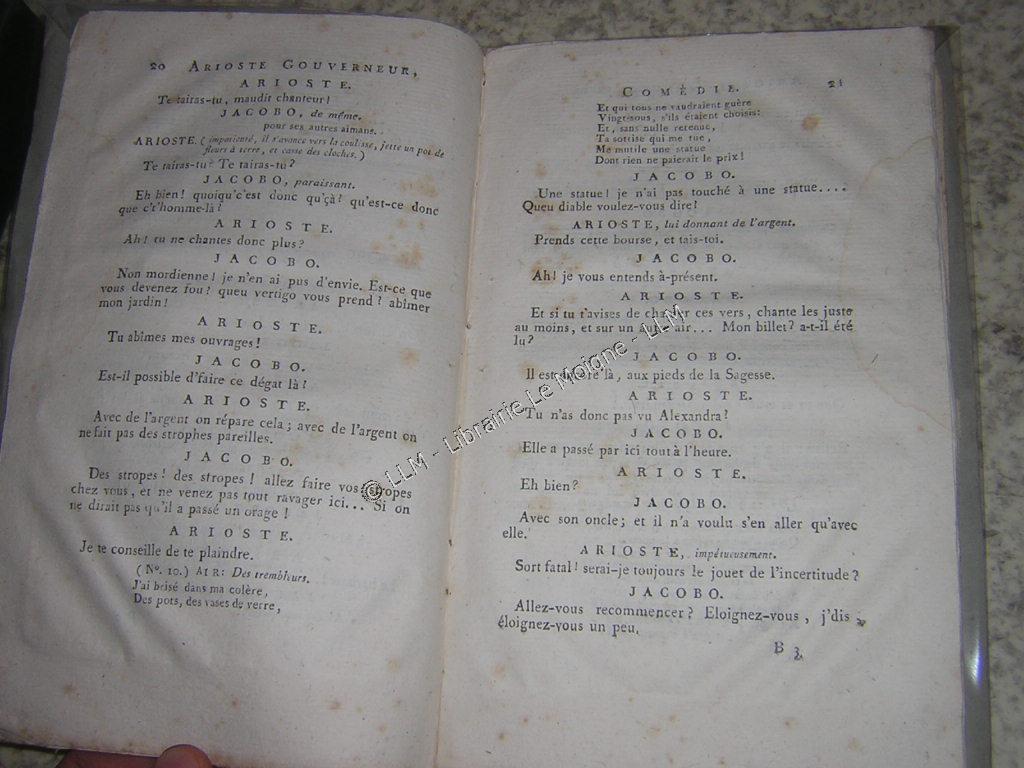 20 ARIOSTE GOUVERNEUR,
ARIOSTE.
Te tairas-tu, maudit chanteur!
JACOBO, de même.
pour ses autres aimans.
ARIOSTE. (impatienté, il s'avance vers la coulisse, jette un pot de
fleurs à terre, et casse des cloches.)
Te tairas-tu? Te tairas-tu?
JACOBO, paraissant.
Eh bien! quoiqu'c'est donc qu'çà? qu'est-ce donc
que c't'homme-là?
ARIOSTE.
Ah! tu ne chantes donc plus?
JACOBO.
Non mordienne! je n'en ai pus d'envie. Est-ce que
vous devenez fou? queu vertigo vous prend? abîmer
mon jardin!
ARIOSTE.
Tu abîmes mes ouvrages!
JACOBO.
Est-il possible d'faire ce dégat là!
ARIOSTE.
Avec de l'argent on répare cela; avec de l'argent on
ne fait pas des strophes pareilles.
JACOBO.
Des stropes! des stropes! allez faire vos stropes
chez vous, et ne venez pas tout ravager ici... Si on
ne dirait pas qu'il a passé un orage!
ARIOSTE.
Je te conseille de te plaindre.
(N°. 10.) AIR: Des trembleurs.
J'ai brisé dans ma colère,
Des pots, des vases de verre,
COMÉDIE. 21
Et qui tous ne vaudraient guère
Vingt sous, s'ils étaient choisis:
Et, sans nulle retenue,
Ta sottise qui me tue,
Me mutile une statue
Dont rien ne paierait le prix!
JACOBO.
Une statue! je n'ai pas touché à une statue....
Queu diable voulez-vous dire?
ARIOSTE, lui donnant de l'argent.
Prends cette bourse, et tais-toi.
JACOBO.
Ah! je vous entends à-présent.
ARIOSTE.
Et si tu t'avises de chanter ces vers, chante les juste
au moins, et sur un autre air... Mon billet? a-t-il été
lu?
JACOBO.
Il est encore là, aux pieds de la Sagesse.
ARIOSTE.
Tu n'as donc pas vu Alexandra?
JACOBO.
Elle a passé par ici tout à l'heure.
ARIOSTE.
Eh bien?
JACOBO.
Avec son oncle; et il n'a voulu s'en aller qu'avec
elle.
ARIOSTE, impétueusement.
Sort fatal! serai-je toujours le jouet de l'incertitude?
JACOBO.
Allez-vous recommencer? Eloignez-vous, j'dis
éloignez-vous un peu.
B 3
© LLM - Librairie Le Moigne - LLM